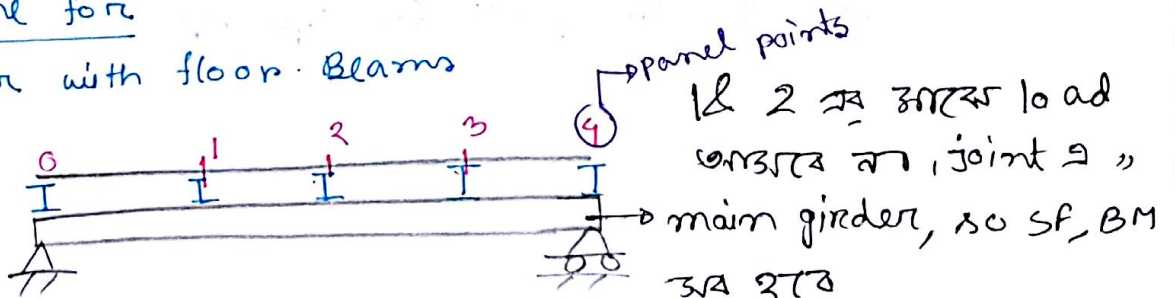 for
with floor Beams
panel points
0 1 2 3 4
1 & 2 এর মাঝে load
আসবে না, joint এ "
main girder, so SF, BM
সব হবে